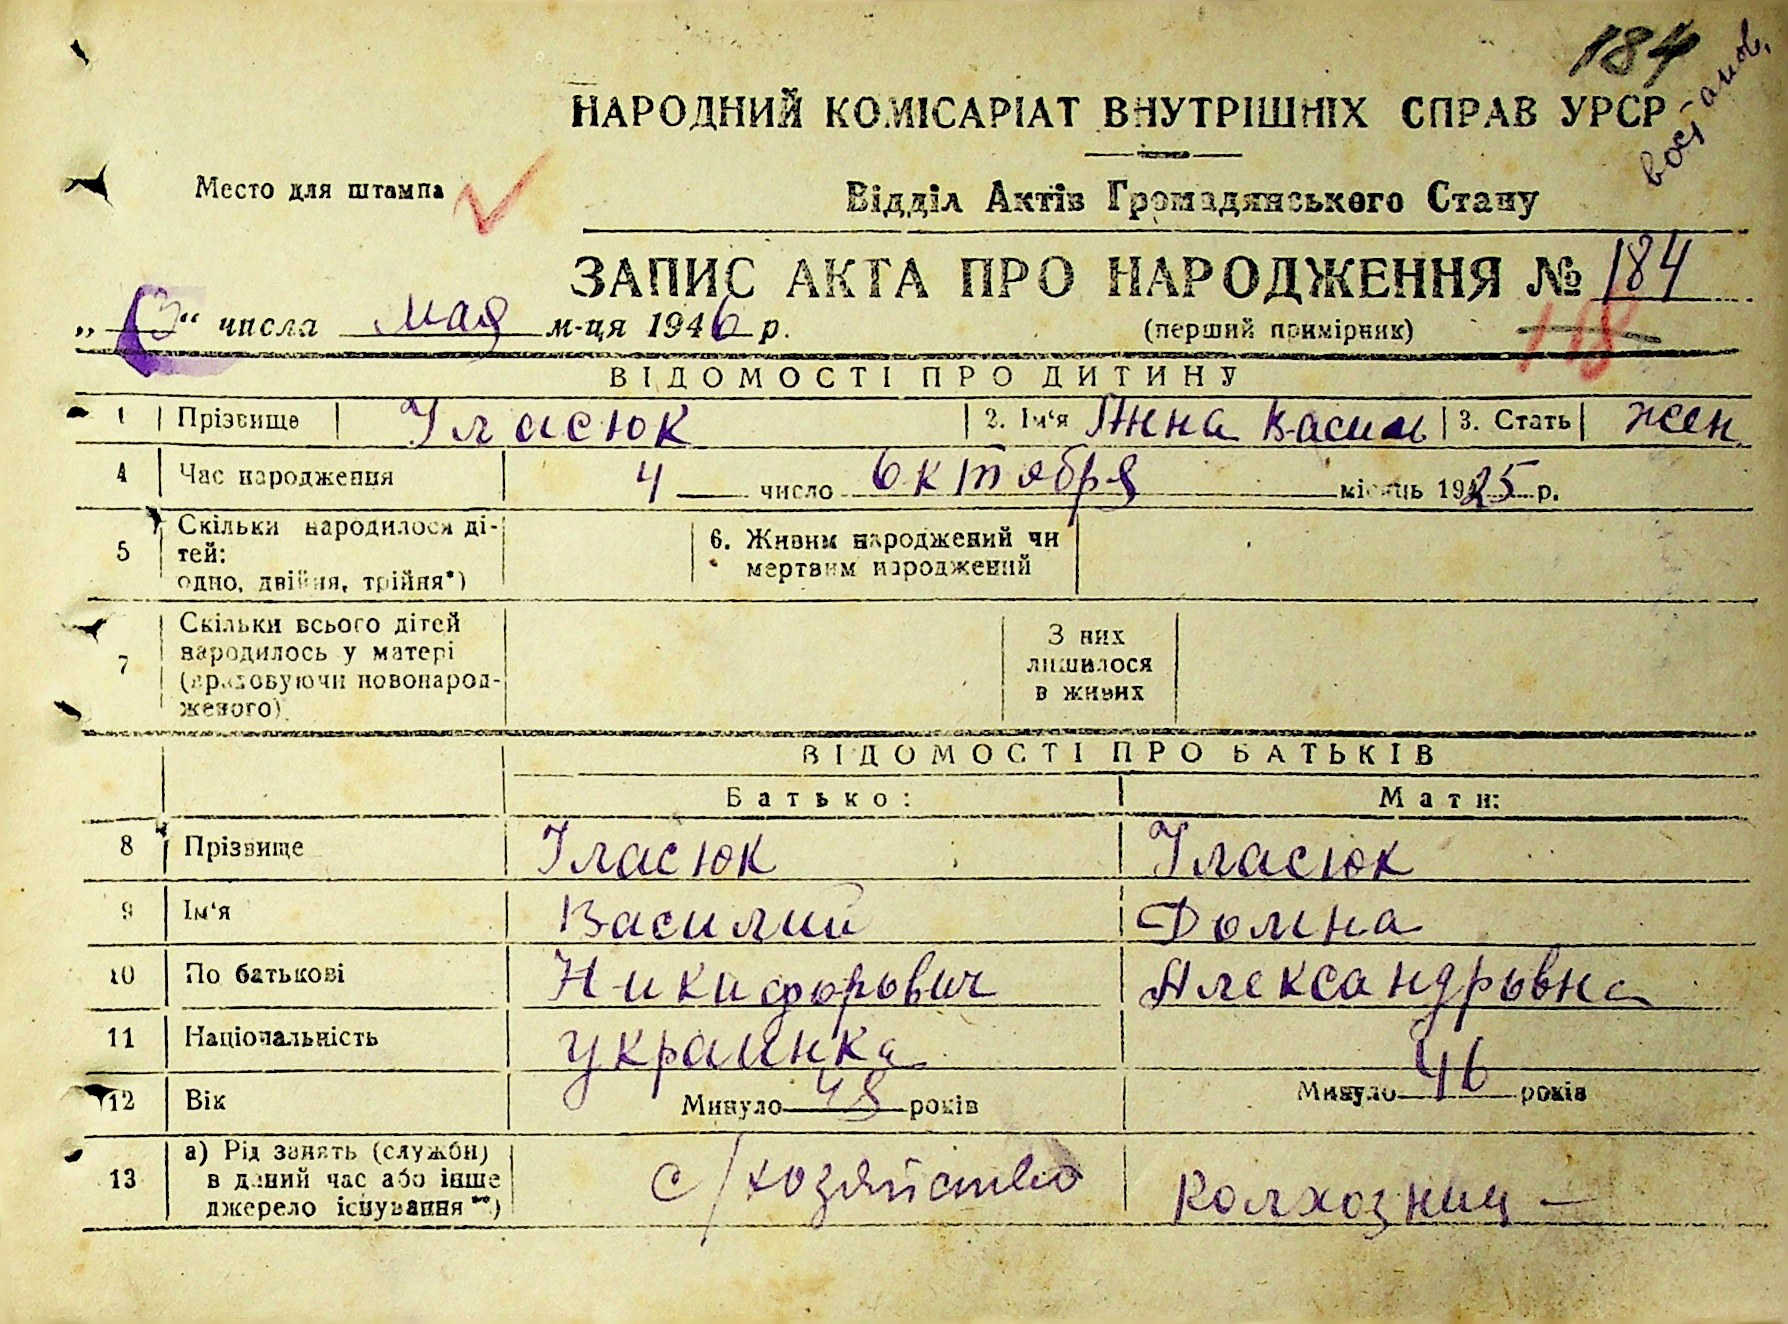 184
востанов.
НАРОДНИЙ КОМІСАРІАТ ВНУТРІШНІХ СПРАВ УРСР
Место для штампа
Відділ Актів Громадянського Стану
ЗАПИС АКТА ПРО НАРОДЖЕННЯ № 184
„3“ числа мая м-ця 1946 р.
(перший примірник)
118
ВІДОМОСТІ ПРО ДИТИНУ
1 Прізвище Уласюк 2. Ім‘я Анна Васил 3. Стать жен
4 Час народження 4 число октября місяць 1925 р.
5 Скільки народилося ді-
тей:
одно, двійня, трійня*)
6. Живим народжений чи
мертвим народжений
7 Скільки всього дітей
народилось у матері
(враховуючи новонарод-
женого)
З них
лишилося
в живих
ВІДОМОСТІ ПРО БАТЬКІВ
Батько: Мати:
8 Прізвище Уласюк Уласюк
9 Ім‘я Василий Домна
10 По батькові Никифорович Александровна
11 Національність украинка
12 Вік Минуло 48 років Минуло 46 років
13 а) Рід занять (служби)
в даний час або інше
джерело існування **)
с/хозяйство колхозниц